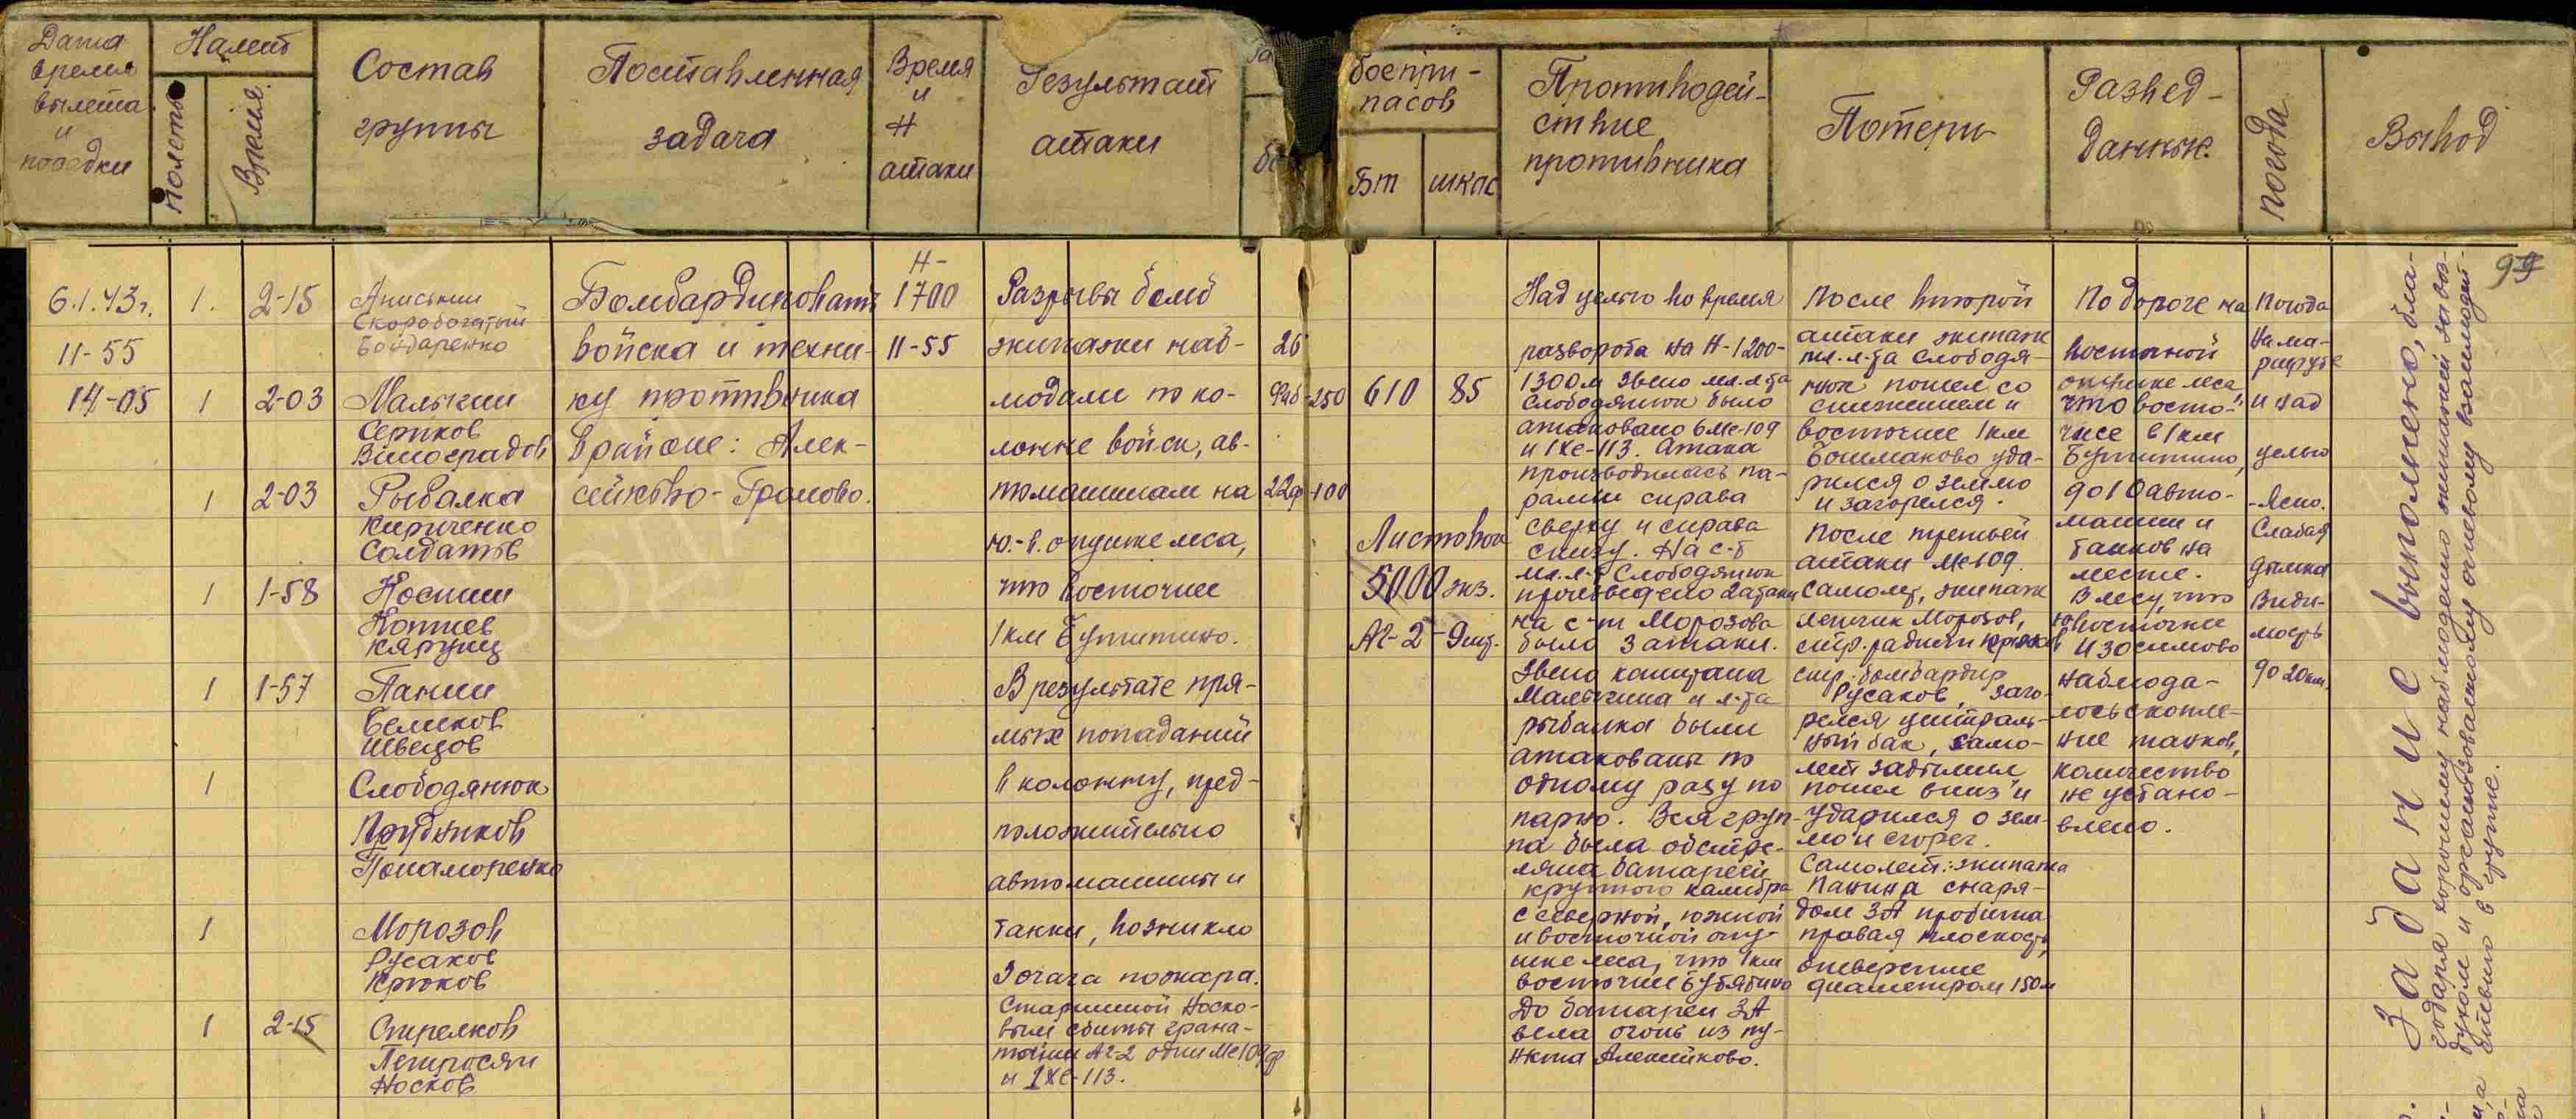 Дата
время
вылета
и
посадки
Налет
полеты
Время
Состав
группы
Поставленная
задача
Время
и
Н
атаки
Результат
атаки
боепри-
пасов
Бт
шкас
Противодей-
ствие
противника
Потери
Развед-
данные.
погода
Вывод
6.1.43г.
11-55
14-05
1.
2-15
Аниськин
Скоробогатый
Бондаренко
1
2-03
Малыгин
Сериков
Виноградов
1
2-03
Рыбалка
Кириченко
Солдатов
1
1-58
Костин
Коптев
Карунц
1
1-57
Панин
Беликов
Швецов
1
Слободянюк
Прудников
Понаморенко
1
Морозов
Русаков
Крюков
1
2-15
Стрелков
Петросян
Носков
Бомбардировать
войска и техни-
ку противника
в районе: Алек-
сейково-Громово.
Н-
1700
11-55
Разрывы бомб
экипажи наб-
людали по ко-
лонне войск, ав-
томашинам на
ю.-в. опушке леса,
что восточнее
1км Бутитино.
В результате пря-
мых попаданий
в колонну, пред-
положительно
автомашины и
танки, возникло
3 очага пожара.
Старшиной Носко-
вым сбиты грана-
тами Аг-2 один Ме109ф
и 1ХЕ-113.
26
Фаб-250
22ф-100
610
85
Листовок
5000 экз.
Аг-2-9шт.
Над целью во время
разворота на Н-1200-
1300м звено мл.л-та
Слободянюк было
атаковано 6 Ме-109
и 1Хе-113. Атака
производилась па-
рами справа
сверху и справа
снизу. На с-т
мл.л-т Слободянюк
произведено 2 атаки
на с-т Морозова
было 3 атаки.
Звено капитана
Малыгина и л-та
Рыбалка были
атакованы по
одному разу по
парно. Вся груп-
па была обстре-
ляна батареей
крупного калибра
с северной, южной
и восточной опу-
шке леса, что 1км
восточнее Бутятино
До батареи ЗА
вела огонь из пу-
нкта Алексейково.
После второй
атаки экипаж
мл.л-та Слободя-
нюк пошел со
снижением и
восточнее 1км
Бошмаково уда-
рился о землю
и загорелся.
После третьей
атаки Ме109.
самолет, экипаж
летчик Морозов,
стр.радист Крюков
стр.бомбардир
Русаков, заго-
релся централь-
ный бак, само-
лет задымил,
пошел вниз и
ударился о зем-
лю и сгорел.
Самолет: экипажа
Панина снаря-
дом ЗА пробита
правая плоскость,
отверстие
диаметром 150м
По дороге на
восточной
опушке леса
что восто-
чнее в 1км
Бутитино,
до 10 авто-
машин и
танков на
месте.
В лесу, что
ювосточнее
Изосимово
наблюда-
лось скопле-
ние танков,
количество
не устано-
влено.
Погода
На ма-
ршруте
и над
целью
-Ясно.
Слабая
дымка
Види-
мость
до 20км.
Задание выполнено, бла-
годаря хорошему наблюдению экипажей за воз-
духом и организованному огневому взаимодей-
ствию в группе.